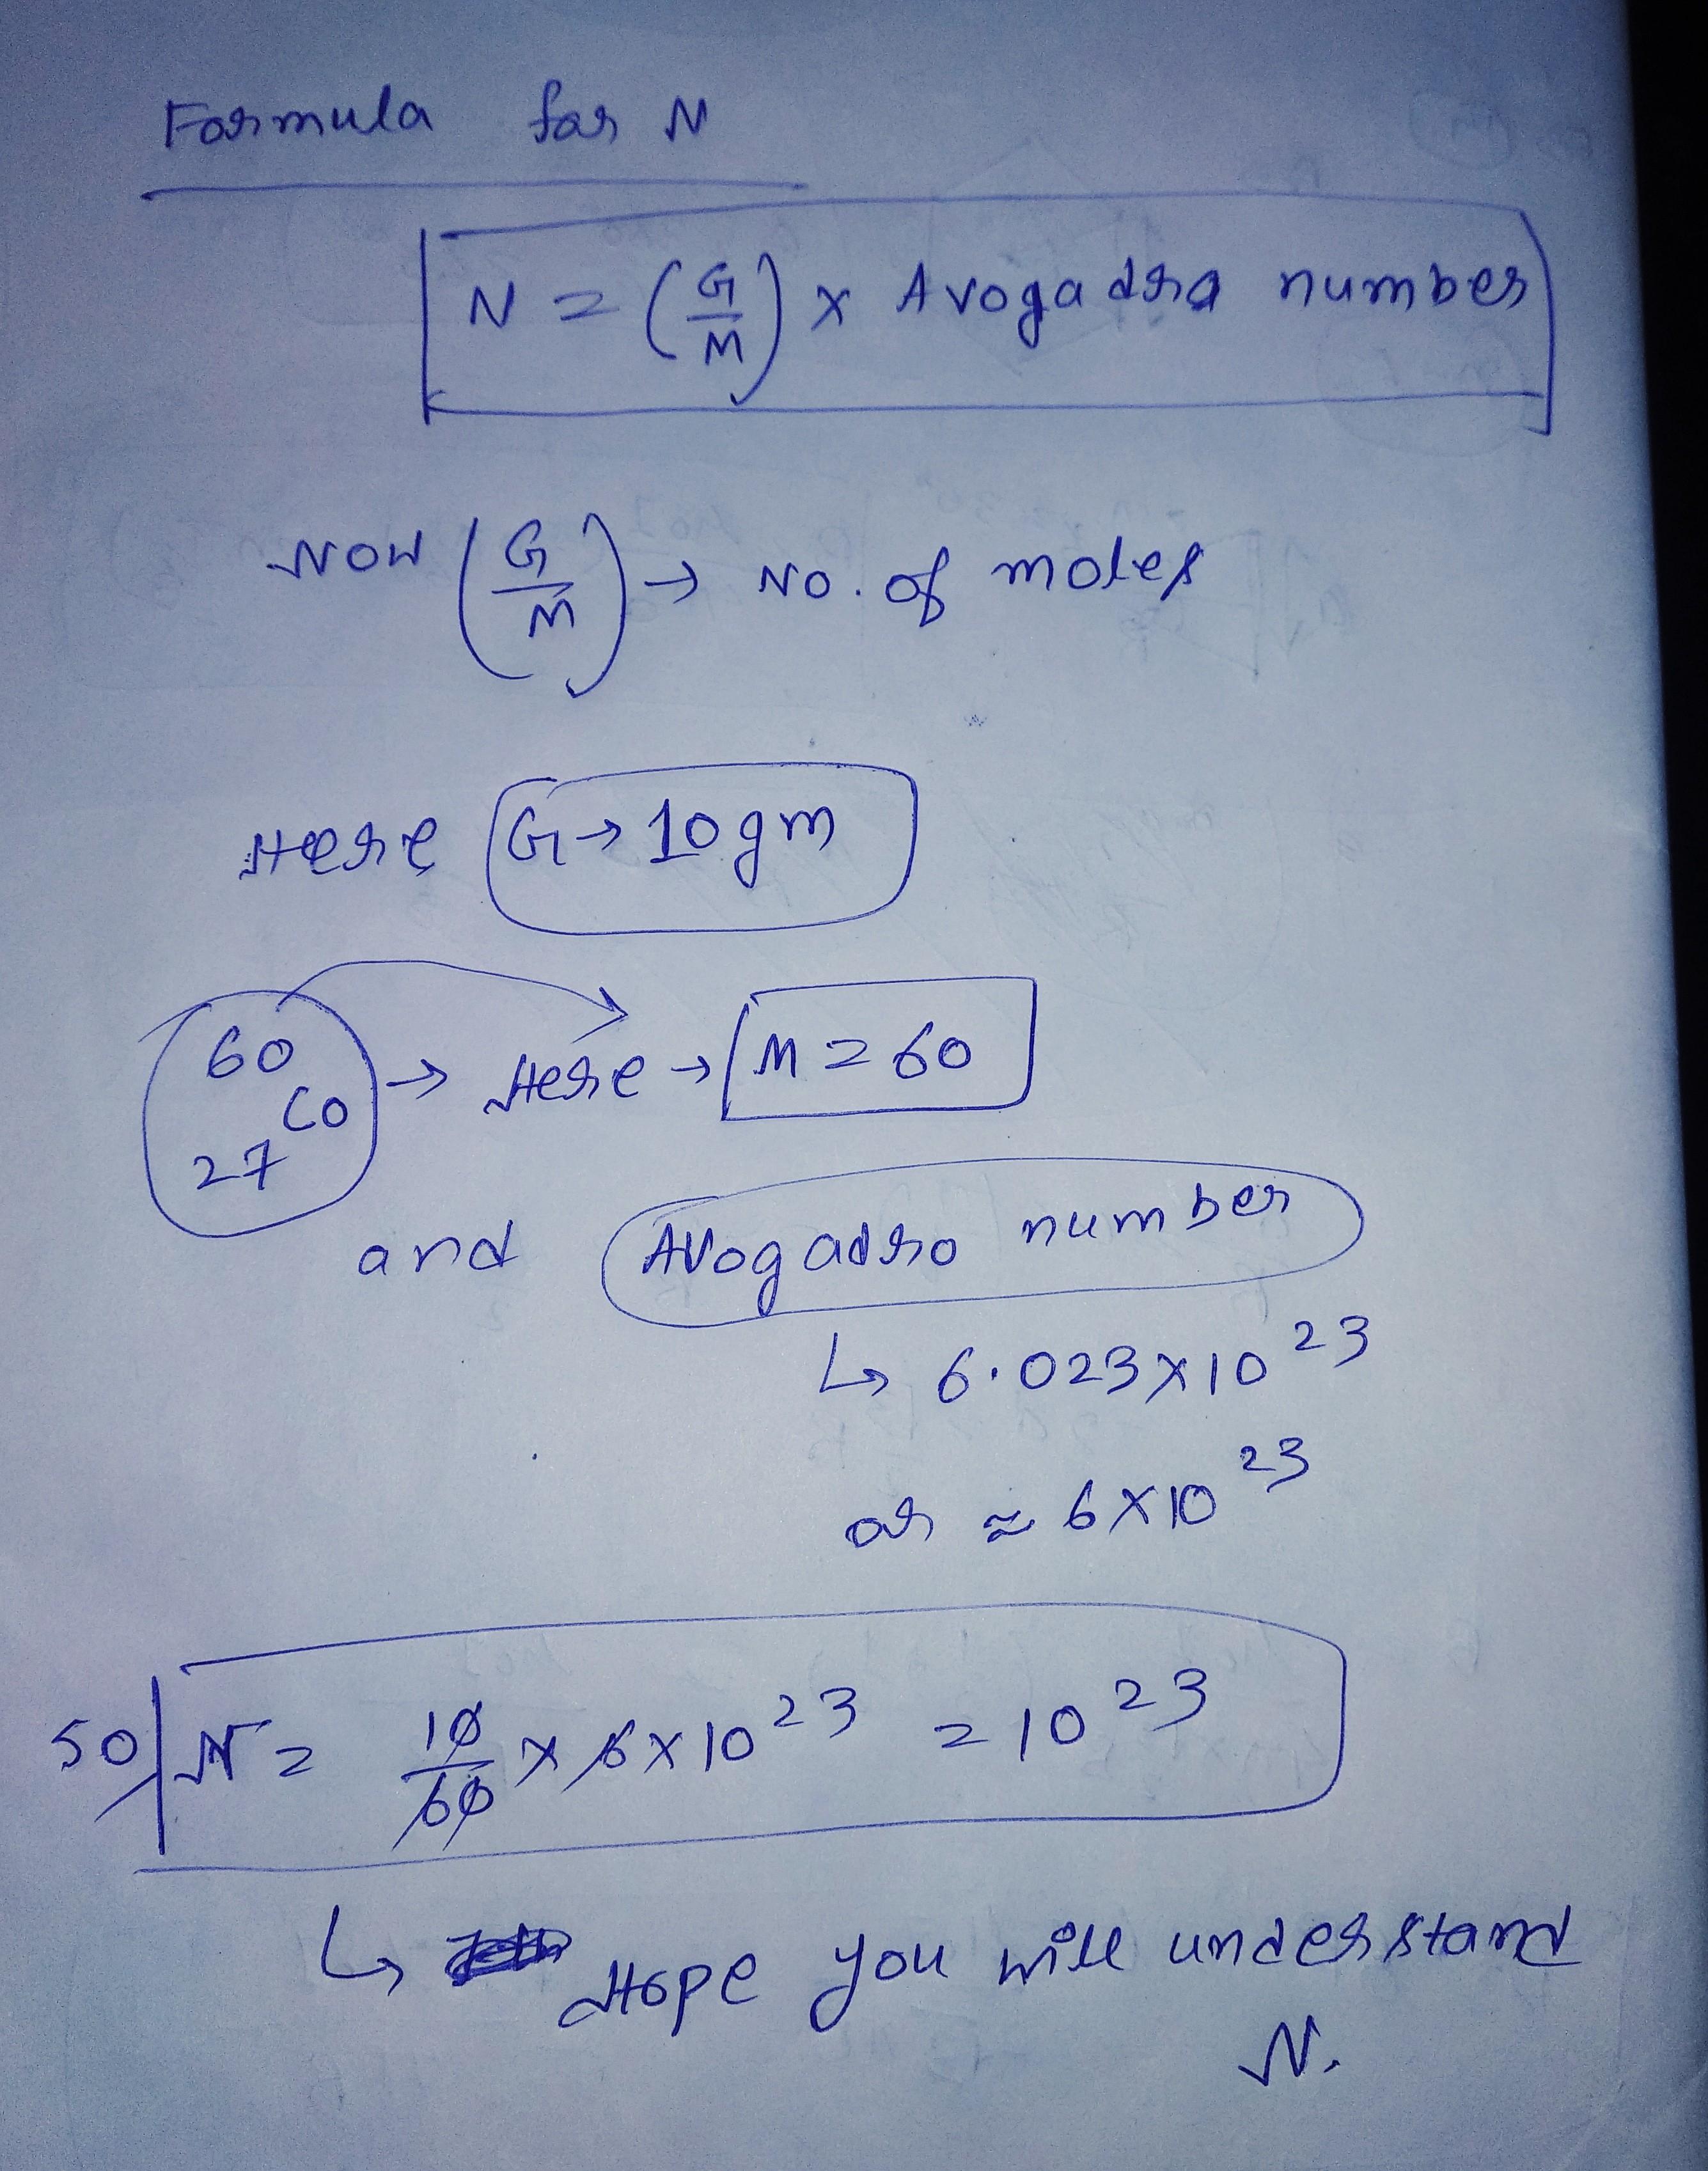 Formula for N
N = (G/M) x Avogadro number
Now (G/M) → No. of moles
Here G → 10gm
60
27 Co → Here → M = 60
and Avogadro number
↳ 6.023 x 10^23
or ≈ 6 x 10^23
so N = 10/60 x 6 x 10^23 = 10^23
↳ Hope you will understand
N.